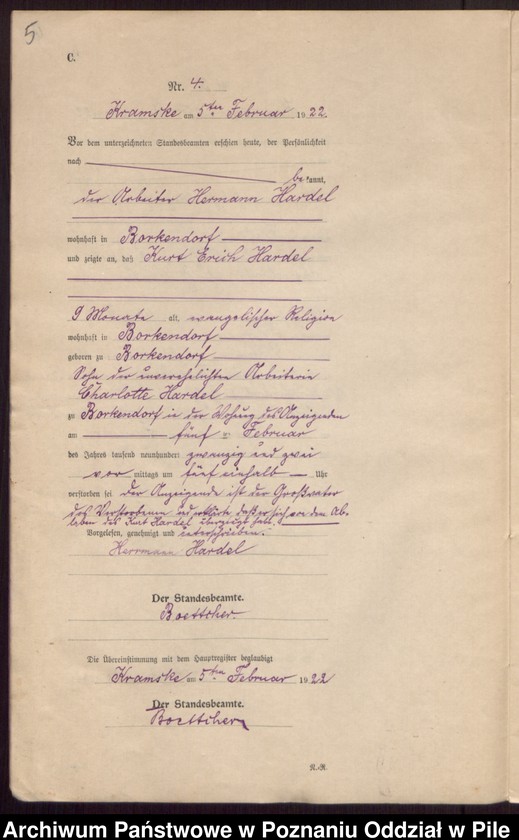 5
C.
Nr. 4.
Kramske am 5ten Februar 1922.
Vor dem unterzeichneten Standesbeamten erschien heute, der Persönlichkeit
nach
bekannt,
der Arbeiter Hermann Hardel
wohnhaft in Borkendorf
und zeigte an, daß Kurt Erich Hardel
9 Monate alt, evangelischer Religion
wohnhaft in Borkendorf
geboren zu Borkendorf
Sohn der unverehelichten Arbeiterin
Charlotte Hardel
zu Borkendorf in der Wohnung des Anzeigenden
am fünf ten Februar
des Jahres tausend neunhundert zwanzig und zwei
vor mittags um fünf einhalb Uhr
verstorben sei. Der Anzeigende ist der Großvater
des Verstorbenen und erklärte, daß er sich von dem Ab-
leben des Kurt Hardel überzeugt hat.
Vorgelesen, genehmigt und unterschrieben.
Herrmann Hardel
Der Standesbeamte.
Boettcher.
Die Übereinstimmung mit dem Hauptregister beglaubigt
Kramske am 5ten Februar 1922
Der Standesbeamte.
Boettcher
R.-R.
Archiwum Państwowe w Poznaniu Oddział w Pile